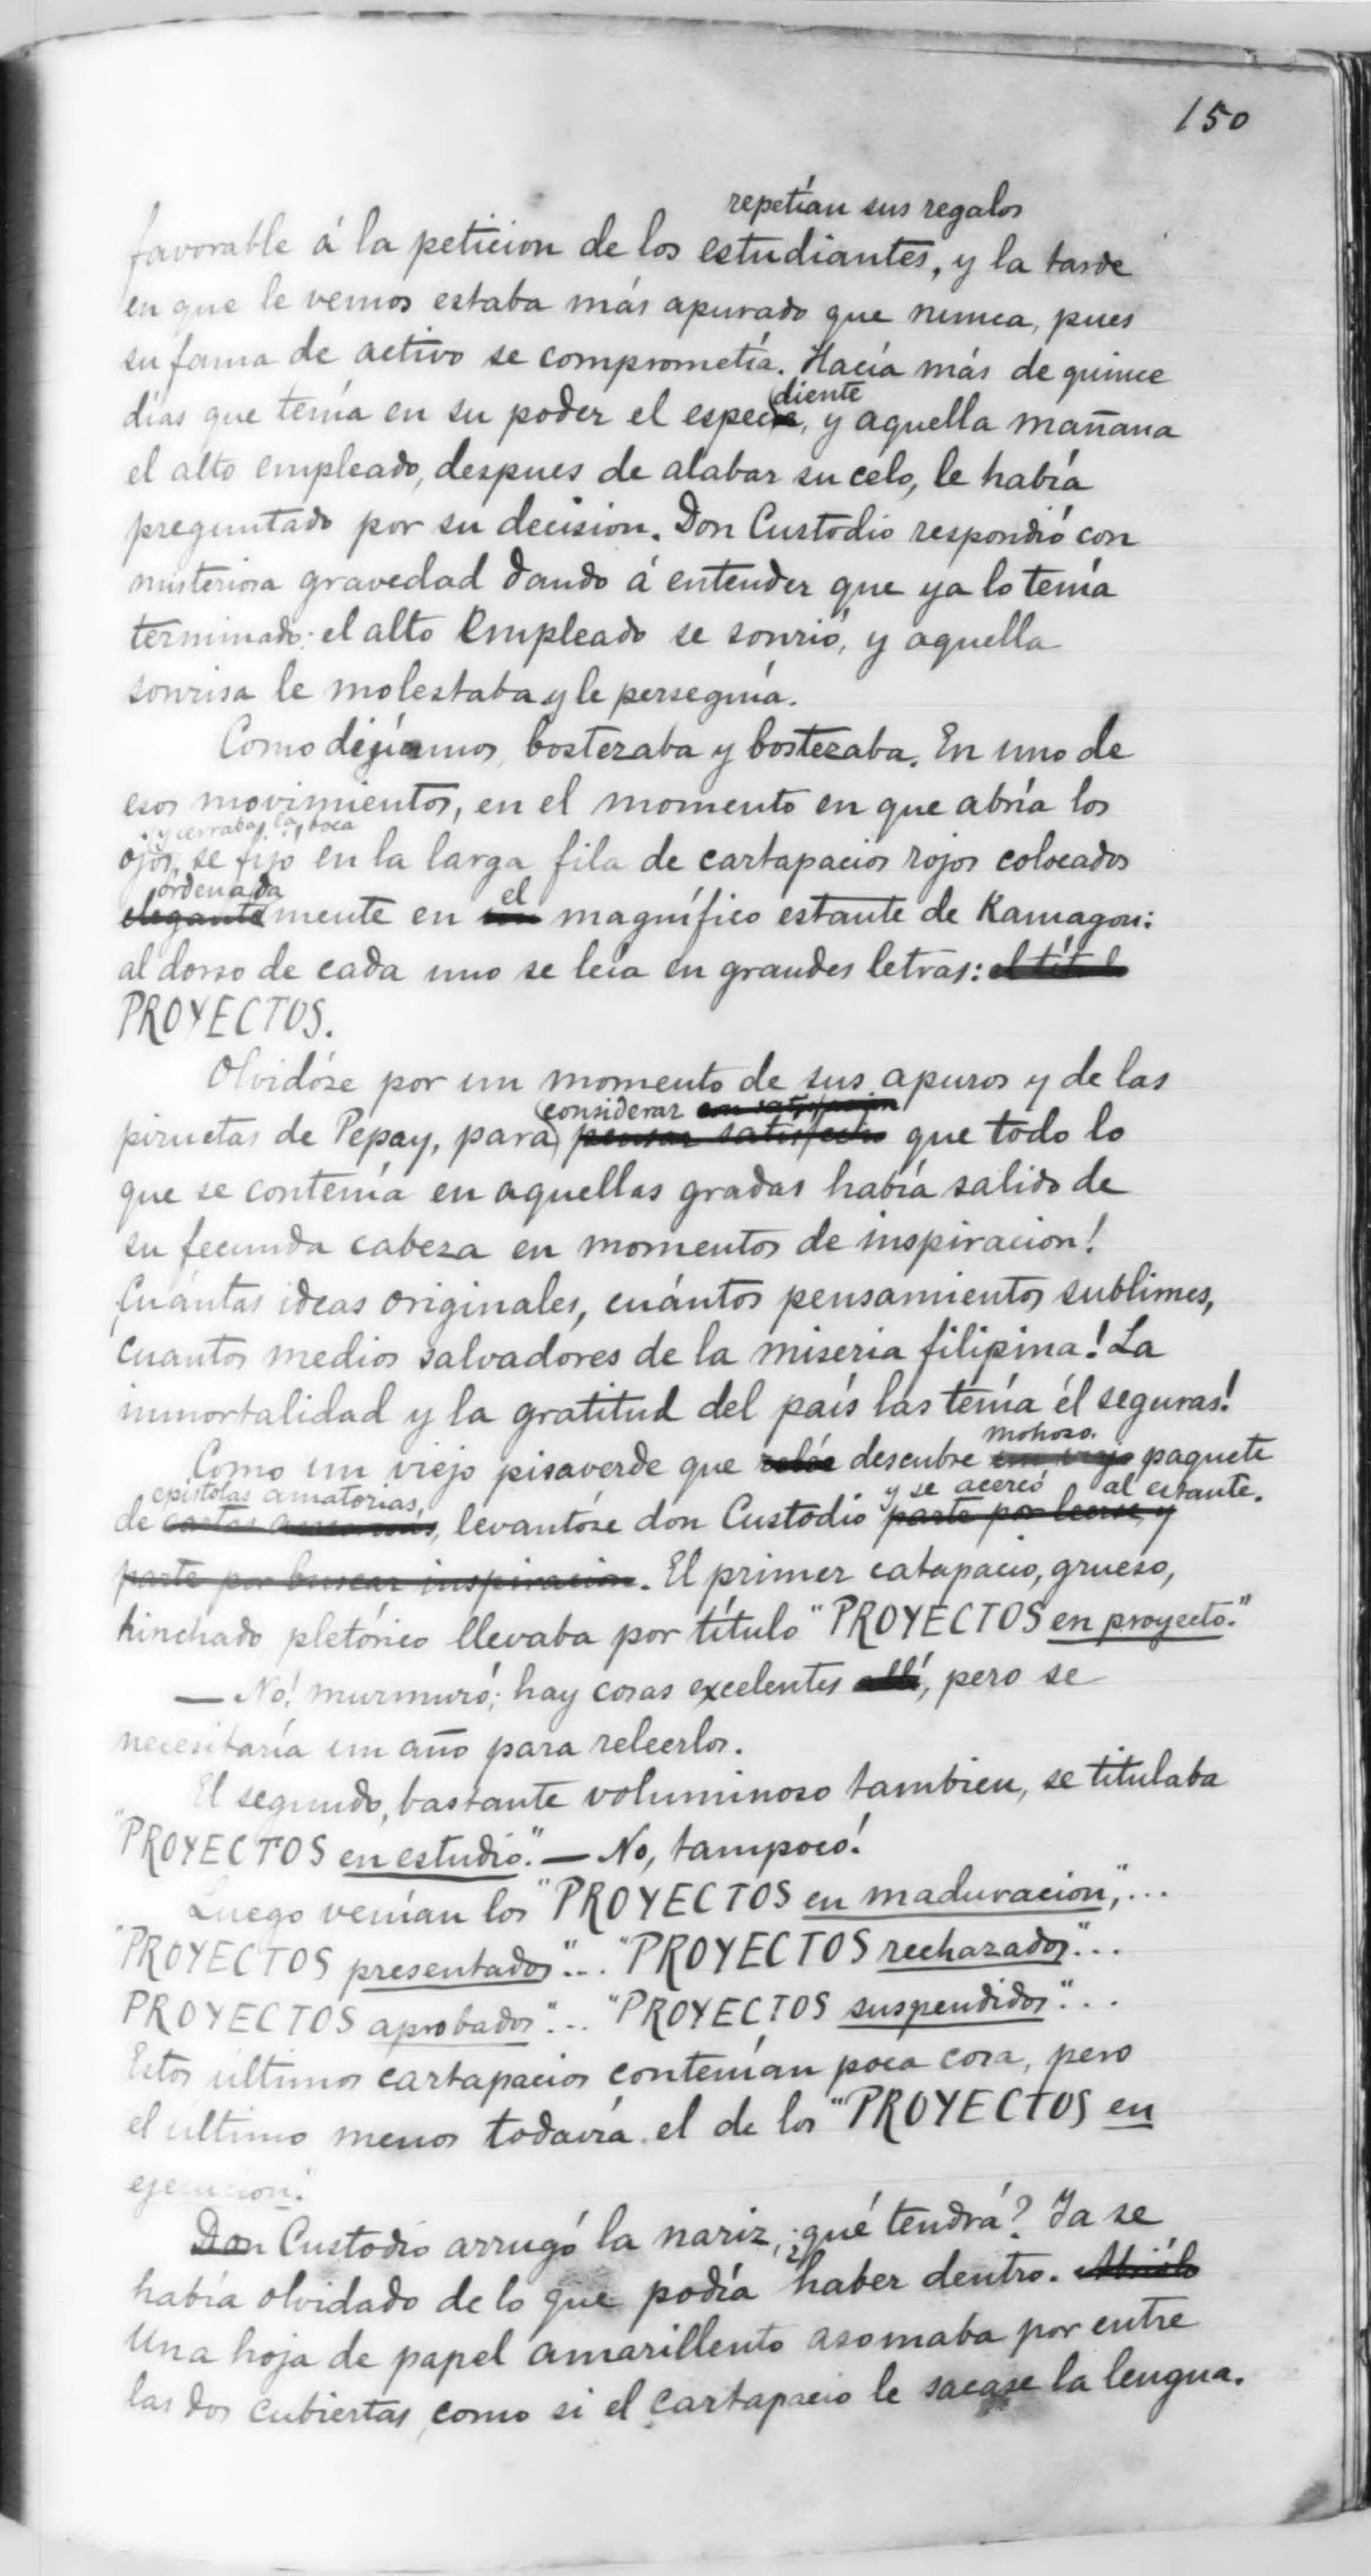 150
repetían sus regalos
favorable á la peticion de los estudiantes, y la tarde
en que le vemos estaba más apurado que nunca, pues
su fama de activo se comprometía. Hacía más de quince
diente
dias que tenía en su poder el espe, y aquella mañana
el alto empleado, despues de alabar su celo, le había
preguntado por su decision. Don Custodio respondió con
misteriosa gravedad dando á entender que ya lo tenía
terminado: el alto empleado se sonrió, y aquella
sonrisa le molestaba y le perseguía.
Como dijimos, bostezaba y bostezaba. En uno de
esos movimientos, en el momento en que abría los
y cerraba la boca
ojos, se fijó en la larga fila de cartapacios rojos colocados
ordenada el
elegantemente en un magnífico estante de Kamagon:
al dorso de cada uno se leía en grandes letras: el títul
PROYECTOS.
Olvidóse por un momento de sus apuros y de las
considerar con satisfaccion
piruetas de Pepay, para pensar satisfecho que todo lo
que se contenía en aquellas gradas había salido de
su fecunda cabeza en momentos de inspiracion!
¡Cuántas ideas originales, cuántos pensamientos sublimes,
cuantos medios salvadores de la miseria filipina! La
inmortalidad y la gratitud del país las tenía él seguras!
mohoso.
Como un viejo pisaverde que descubre un viejo paquete
epistolas amatorias, y se acercó al estante.
de cartas amorosas, levantóse don Custodio parte por leerse, y
parte por buscar inspiracion. El primer catapacio, grueso,
hinchado pletórico llevaba por título "PROYECTOS en proyecto."
— No! murmuró; hay cosas excelentes allí, pero se
necesitaría un año para releerlos.
El segundo, bastante voluminoso tambien, se titulaba
"PROYECTOS en estudio." — No, tampoco!
Luego venían los "PROYECTOS en maduracion,"...
"PROYECTOS presentados"... "PROYECTOS rechazados"...
PROYECTOS aprobados"... "PROYECTOS suspendidos"...
Estos últimos cartapacios contenían poca cosa, pero
el último menos todavía, el de los "PROYECTOS en
ejecucion."
Don Custodio arrugó la nariz, ¿qué tendrá? Ya se
había olvidado de lo que podía haber dentro. Abriólo
Una hoja de papel amarillento asomaba por entre
las dos cubiertas, como si el cartapacio le sacase la lengua.